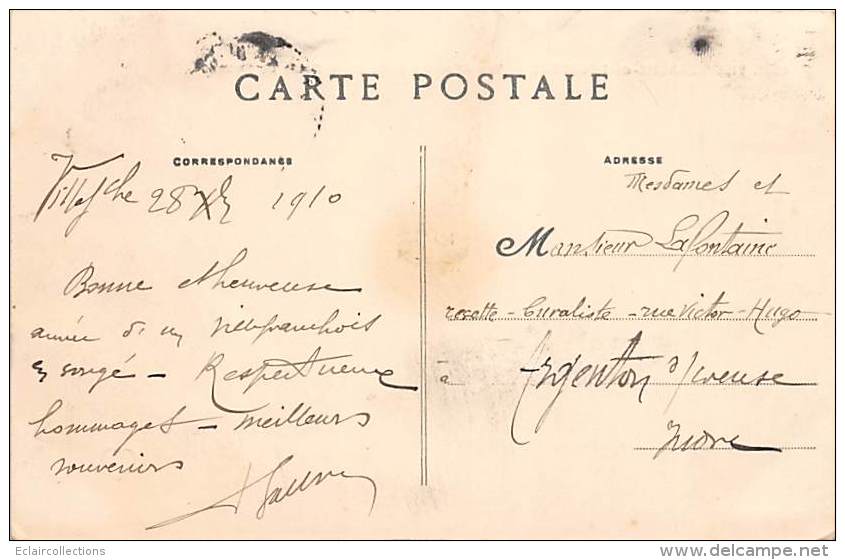 CARTE POSTALE
CORRESPONDANCE
Villefche 28 Xb 1910
Bonne et heureuse
année d'un Villefranchois
en congé – Respectueux
hommages – meilleurs
souvenirs
ADRESSE
Mesdames et
Monsieur Lafontaine
recette - buraliste - rue Victor - Hugo
à Argenton s/Creuse
Indre
Eclaircollections
www.delcampe.net